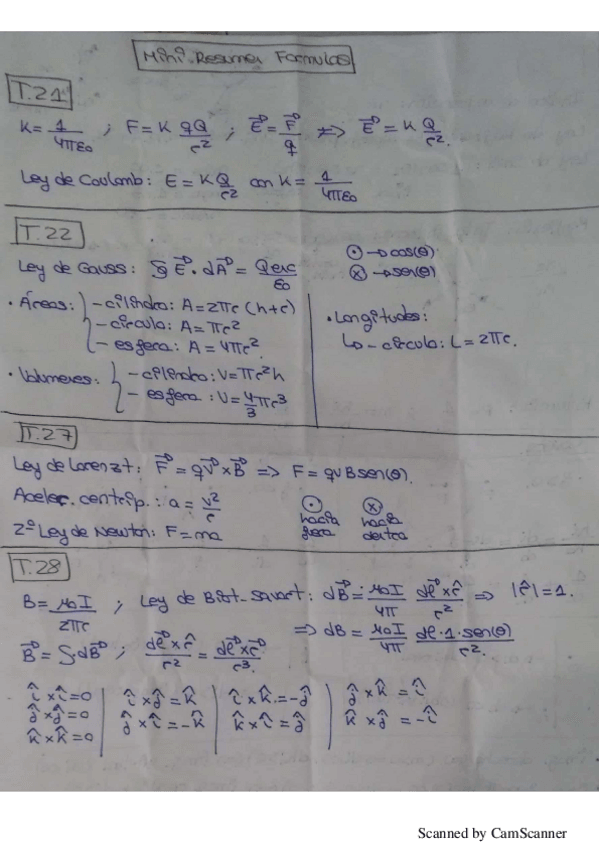 Mini-Resumen Formulas
T.21
K = 1/4πε₀ ; F = K qQ/r² ; E⃗ = F⃗/q => E⃗ = K Q/r².
Ley de Coulomb: E = K Q/r² con K = 1/4πε₀
T.22
Ley de Gauss: ∮ E⃗ · dA⃗ = Qenc/ε₀
⊙ → cos(θ)
⊗ → sen(θ)
· Áreas: - cilindro: A = 2πr (h+r)
- circulo: A = πr²
- esfera: A = 4πr².
· Longitudes:
↳ - circulo: L = 2πr.
· Volumenes: - cilindro: V = πr²h
- esfera : V = 4/3 πr³
T.27
Ley de Lorenzt: F⃗ = qV⃗ × B⃗ => F = qvBsen(θ).
Aceler. centrip.: a = v²/r
2ª Ley de Newton: F = ma
⊙ hacia fuera
⊗ hacia dentro
T.28
B = μ₀I/2πr ; Ley de Biot-Savart: dB⃗ = μ₀I/4π dl⃗ × r̂/r² => |r̂| = 1.
=> dB = μ₀I/4π dl·1·sen(θ)/r².
B⃗ = ∫·dB⃗ ; dl⃗ × r̂/r² = dl⃗ × r⃗/r³.
î × î = 0 | î × ĵ = k̂ | î × k̂ = -ĵ | ĵ × k̂ = î
ĵ × ĵ = 0 | ĵ × î = -k̂ | k̂ × î = ĵ | k̂ × ĵ = -î
k̂ × k̂ = 0
Scanned by CamScanner